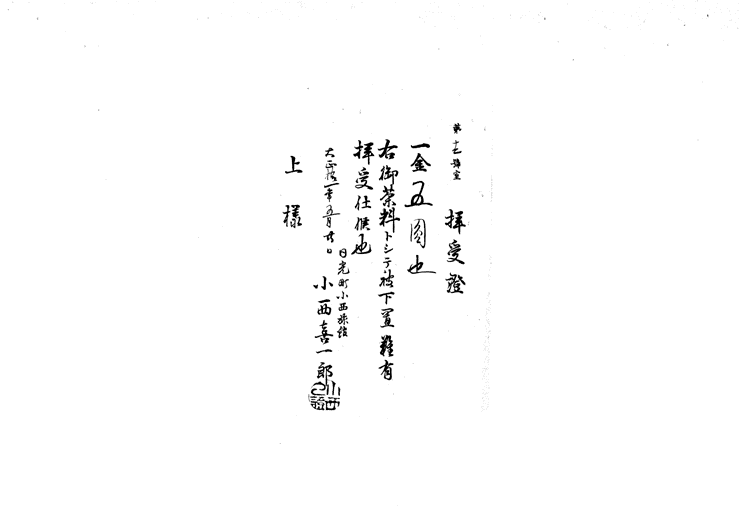 第十七號室
拝受證
一金五圓也
右御茶料トシテ被下置難有
拝受仕候也
大正拾一年五月 日
日光町小西旅館
小西喜一郎
上様